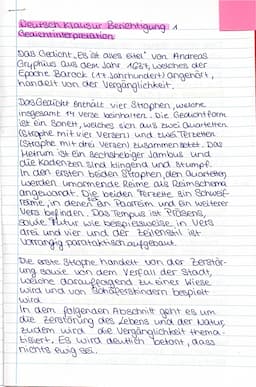 Deutsch Klausur Berichtigung 1
Gedichtinterpretation
Das Gedicht „Es ist alles eitel" von Andreas
Gryphius aus dem Jahr 1637, welches der
Epoche Barock (17. Jahrhundert) angehört,
handelt von der Vergänglichkeit.
Das Gedicht enthält vier Strophen, welche
insgesamt 14 Verse beinhalten. Die Gedichtform
ist ein Sonett, welches sich aus zwei Quartetten
(Strophe mit vier Versen) und zwei Terzetten
(Strophe mit drei Versen) zusammensetzt. Das
Metrum ist ein sechshebiger Jambus und
die Kadenzen sind klingend und stumpf.
In den ersten beiden Strophen, den Quartetten,
werden umarmende Reime als Reimschema
angewandt. Die beiden Terzette ein Schweif-
reime, in denen ein Paarreim und ein weiterer
Vers befinden. Das Tempus ist Präsens,
sowie Futur wie beispielsweise in Vers
drei und vier und der Zeilenstil ist
vorrangig parataktisch aufgebaut.
Die erste Strophe handelt von der Zerstör-
ung sowie von dem Verfall der Stadt,
welche darauffolgend zu einer Wiese
wird und von Schäferskindern bespielt
wird.
In dem folgenden Abschnitt geht es um
die Zerstörung des Lebens und der Natur,
zudem wird die Vergänglichkeit thema-
tisiert. Es wird deutlich betont, dass
nichts ewig sei.